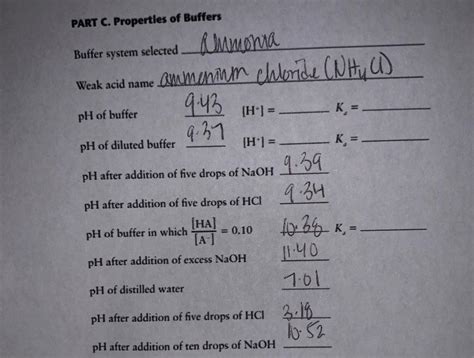 PART C. Properties of Buffers
Buffer system selected Ammonia
Weak acid name ammonium chloride (NH4Cl)
pH of buffer 9.43 [H+] = Ka =
pH of diluted buffer 9.37 [H+] = Ka =
pH after addition of five drops of NaOH 9.39
pH after addition of five drops of HCl 9.34
pH of buffer in which [HA]/[A-] = 0.10 10.38 Ka =
pH after addition of excess NaOH 11.40
pH of distilled water 7.01
pH after addition of five drops of HCl 3.18
pH after addition of ten drops of NaOH 10.52